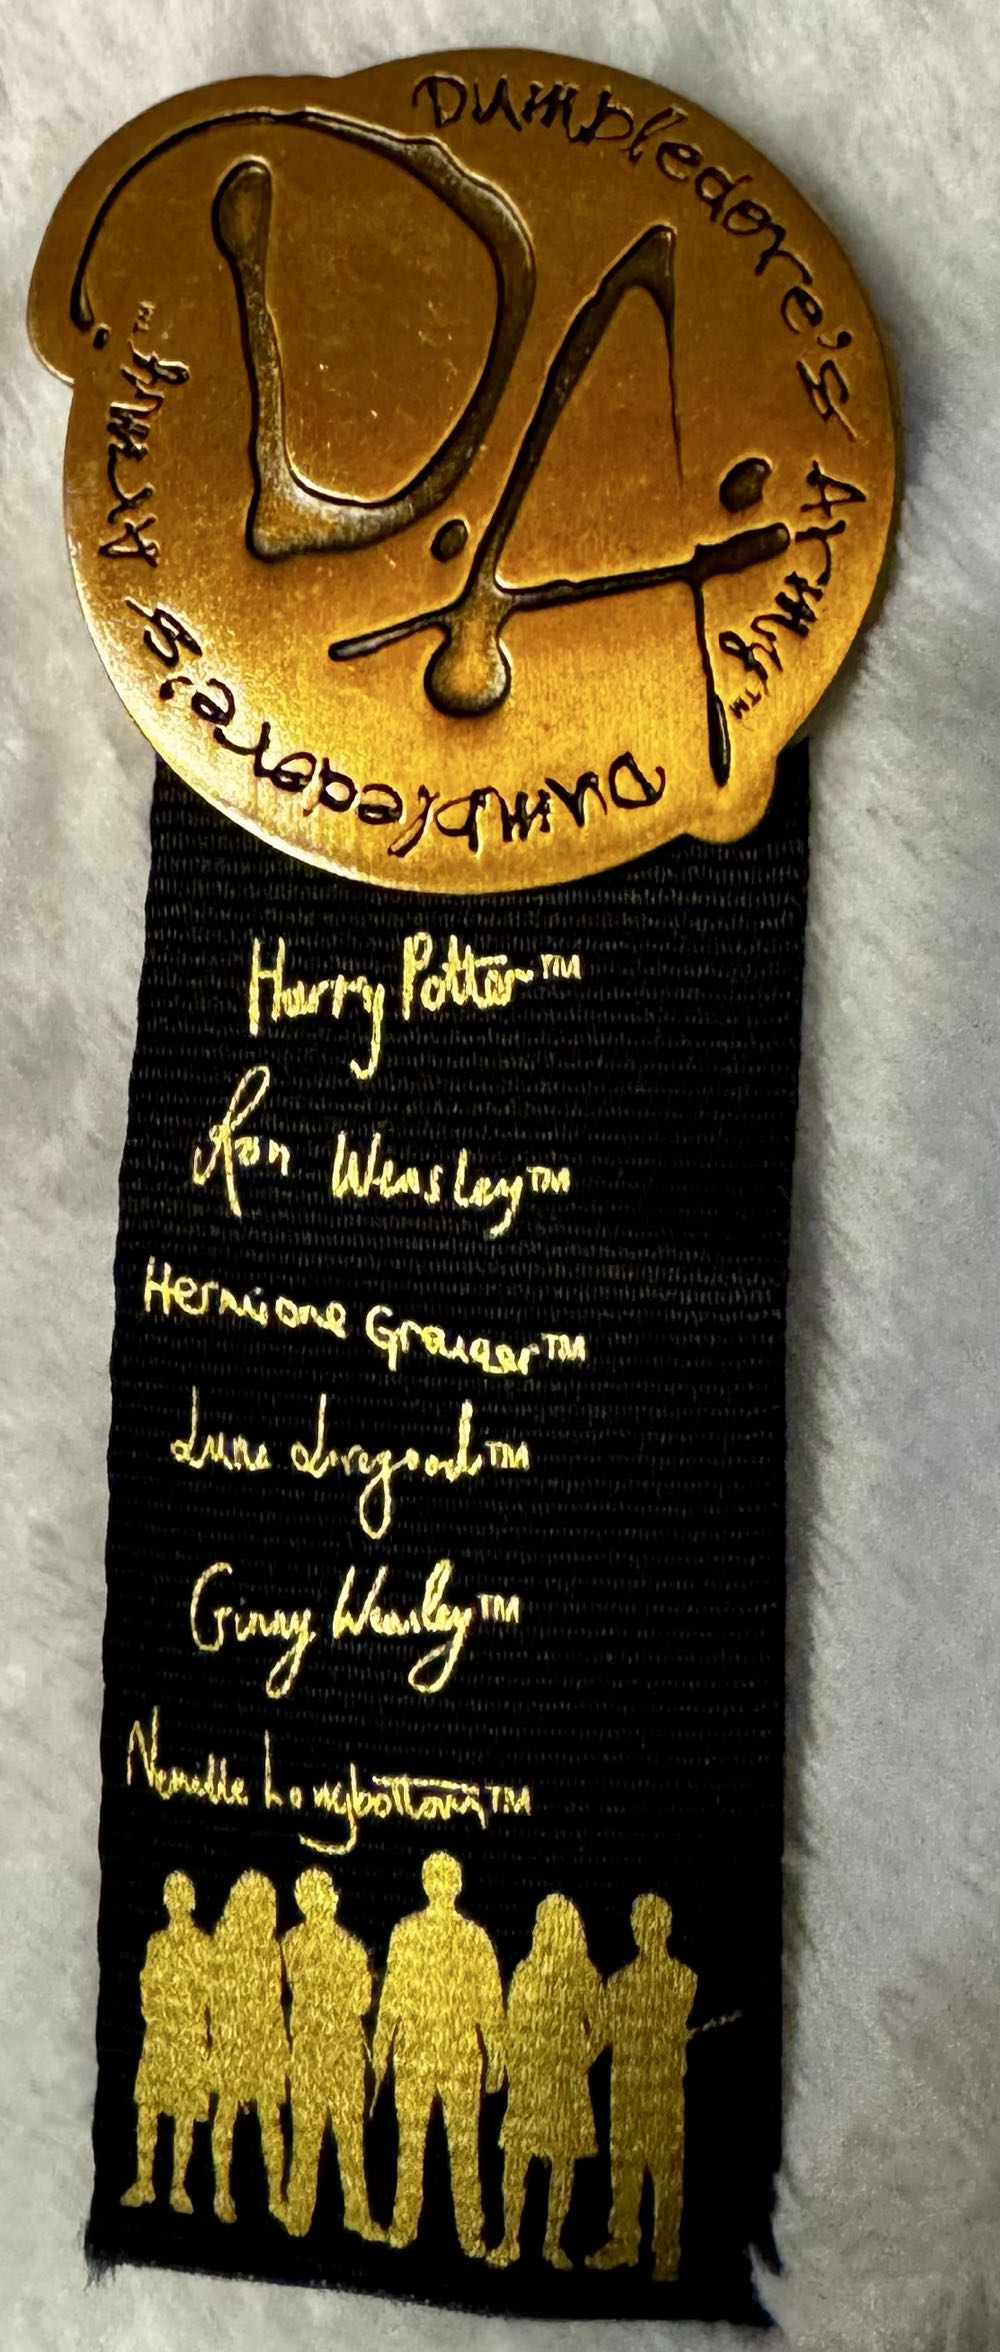 Dumbledore's Army™
D.A.
Dumbledore's Army™
Harry Potter™
Ron Weasley™
Hermione Granger™
Luna Lovegood™
Ginny Weasley™
Neville Longbottom™